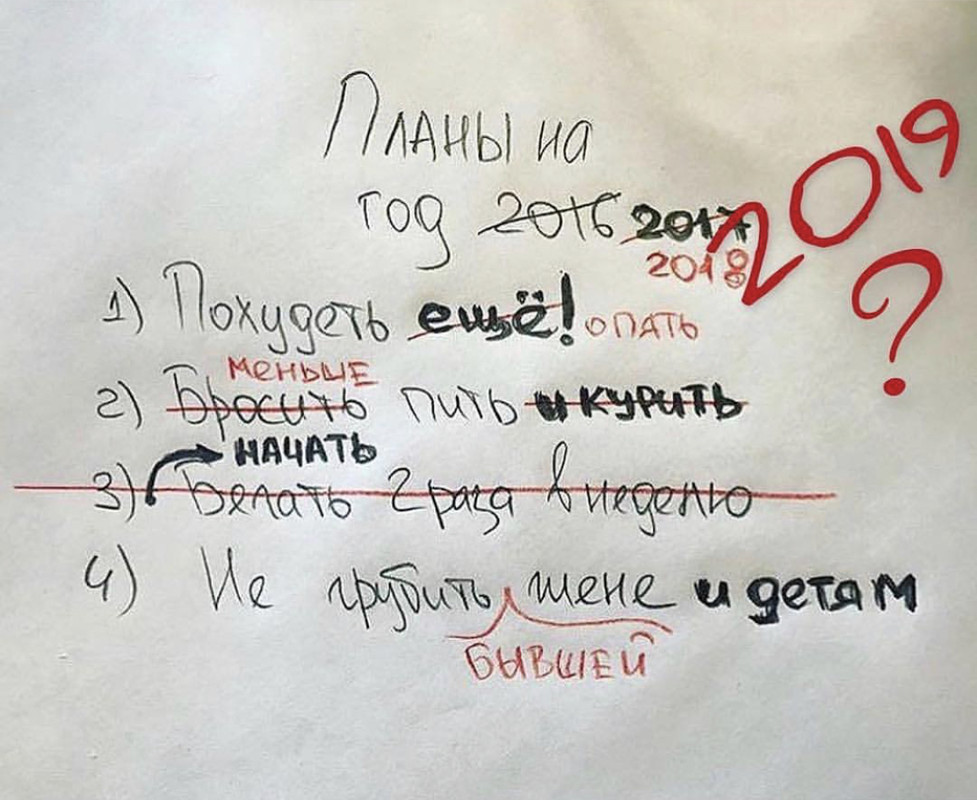 Планы на
год 2016 2017 2019
2018 ?
1) Похудеть ещё! опять
меньше
2) Бросить пить и курить
начать
3) Бегать 2 раза в неделю
4) Не грубить жене и детям
бывшей